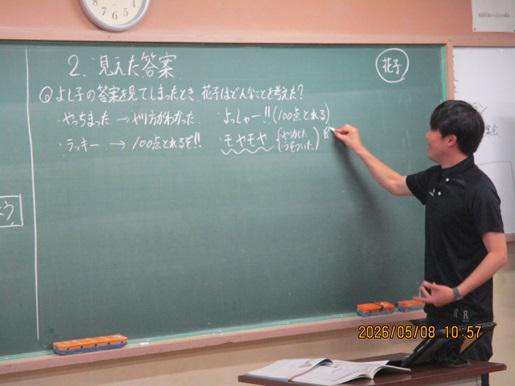 2. 見えた答案
花子
Qよし子の答案を見てしまったとき、花子はどんなことを考えた?
・やっちまった → やり方がわかった
・よっしゃー!!(100点とれる)
・ラッキー → 100点とれるぞ!!
・モヤモヤ
うそついた
2026/05/08 10:57